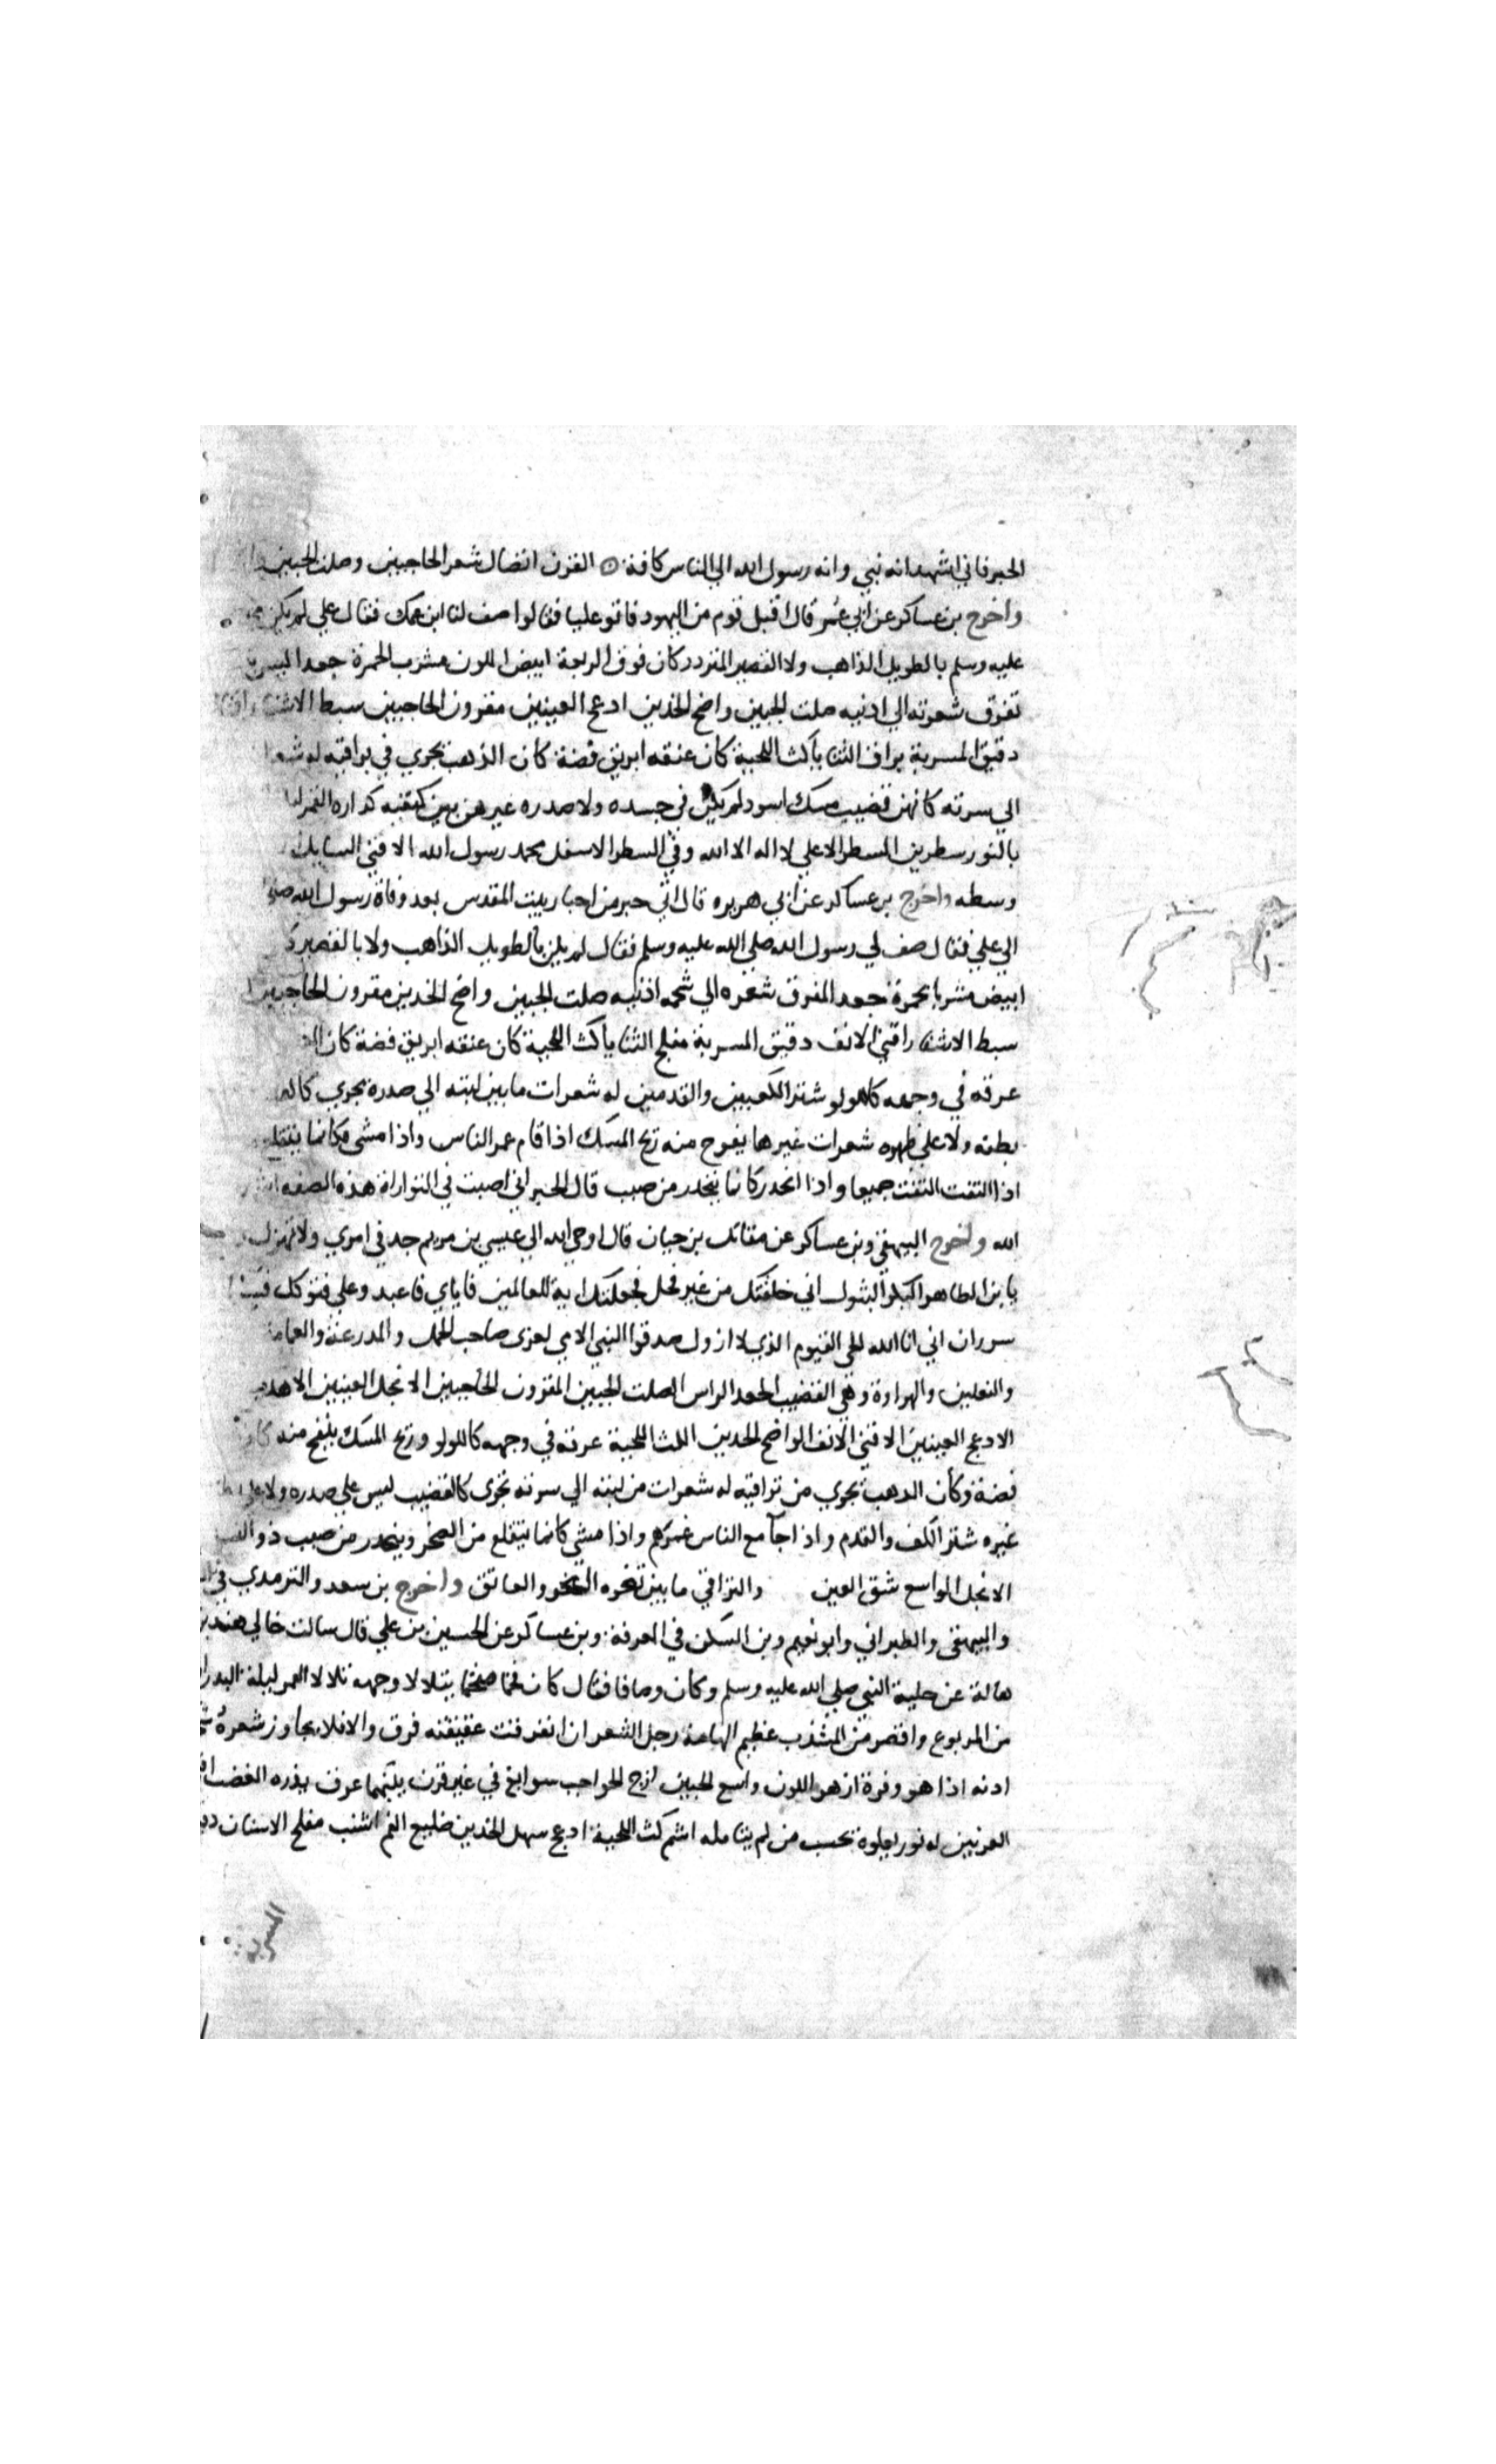 الحبر فاني اشهد انه نبي وانه رسول الله الي الناس كافة ۞ القرن اتصال شعر الحاجبين وصلت الجبين
واخرج بن عساكر عن ابي عمر قال اقبل قوم من اليهود فاتو عليا فقالوا صف لنا ابن عمك فقال علي لم يكن
عليه وسلم بالطويل الذاهب ولا القصير المتردد كان فوق الربعة ابيض اللون مشرب الحمرة جعدا ليس
تفرق شعرته الي اذنيه صلت الجبين واضح الخدين ادعج العينين مقرون الحاجبين سبط الاشفار
دقيق المسربة براق الثنايا كث اللحية كان عنقه ابريق فضة كان الذهب يجري في تراقيه له
الي سرته كانهن قضيب مسك اسود لم يكن في جسده ولا صدره غيرهن بين كتفيه كدارة القمر
بالنور سطرين السطر الاعلي لا اله الا الله وفي السطر الاسفل محمد رسول الله الاقني السابل
وسطه واخرج بن عساكر عن ابي هريره قال اتي حبر من احبار بيت المقدس بعد وفاة رسول الله
الي علي فقال صف لي رسول الله صلي الله عليه وسلم فقال لم يكن بالطويل الذاهب ولا بالقصير
ابيض مشربا بحمرة جعد المفرق شعره الي شحمه اذنيه صلت الجبين واضح الخدين مقرون الحاجبين
سبط الاشفار اقني الانف دقيق المسربة مفلج الثنايا كث اللحية كان عنقه ابريق فضة كان
عرقه في وجهه كالولو شثن الكعبين والقدمين له شعرات ما بين لبته الي صدره يجري
بطنه ولا علي ظهره شعرات غيرها يفوح منه ريح المسك اذا قام غمر الناس واذا مشي فكانما
اذا التفت التفت جميعا واذا انحدر كانما ينحدر من صبب قال الحبر اني اصبت في التوراة هذه الصفه
الله واخرج البيهقي وبن عساكر عن مقاتل بن حيان قال اوحي الله الي عيسي بن مريم جد في امري ولا تهزل
يابن الطاهر البكر البتول اني خلقتك من غير فحل فجعلتك اية للعالمين فاياي فاعبد وعلي فتوكل
سوران اني انا الله الحي القيوم الذي لا ازول صدقوا النبي الامي لعزي صاحب الجمل والمدرعة والعمامة
والنعلين والهراوة وهي القضيب الجعد الراس الصلت الجبين المقرون الحاجبين الانجل العينين
الادعج العينين الاقني الانف الواضح الخدين الكث اللحية عرقه في وجهه كاللولو وريح المسك ينفح منه
فضة وكأن الذهب يجري من تراقيه له شعرات من لبته الي سرته تجري كالقضيب ليس علي صدره ولا علي
غيره شثن الكف والقدم واذا جآ مع الناس غمرهم واذا مشي كانما يتقلع من الصخر وينحدر من صبب ذو
الانجل الواسع شق العين والتراقي ما بين ثغره النحر والعاتق واخرج بن سعد والترمدي في
والبيهقي والطبراني وابو نعيم وبن السكن في المعرفة وبن عساكر عن الحسين بن علي قال سالت خالي هند بن
هالة عن حلية النبي صلي الله عليه وسلم وكان وصافا فقال كان فخما مفخما يتلالا وجهه تلالا القمر ليلة البدر
من المربوع واقصر من المشذب عظيم الهامة رجل الشعر ان انفرقت عقيقته فرق والا فلا يجاوز شعره
اذنه اذا هو وفرة ازهر اللون واسع الجبين ازج الحواجب سوابغ في غير قرن بينهما عرق يدره الغضب
العرنين له نور يعلوه يحسب من لم يتامله اشم كث اللحية ادعج سهل الخدين ضليع الفم اشنب مفلج الاسنان
المسربه